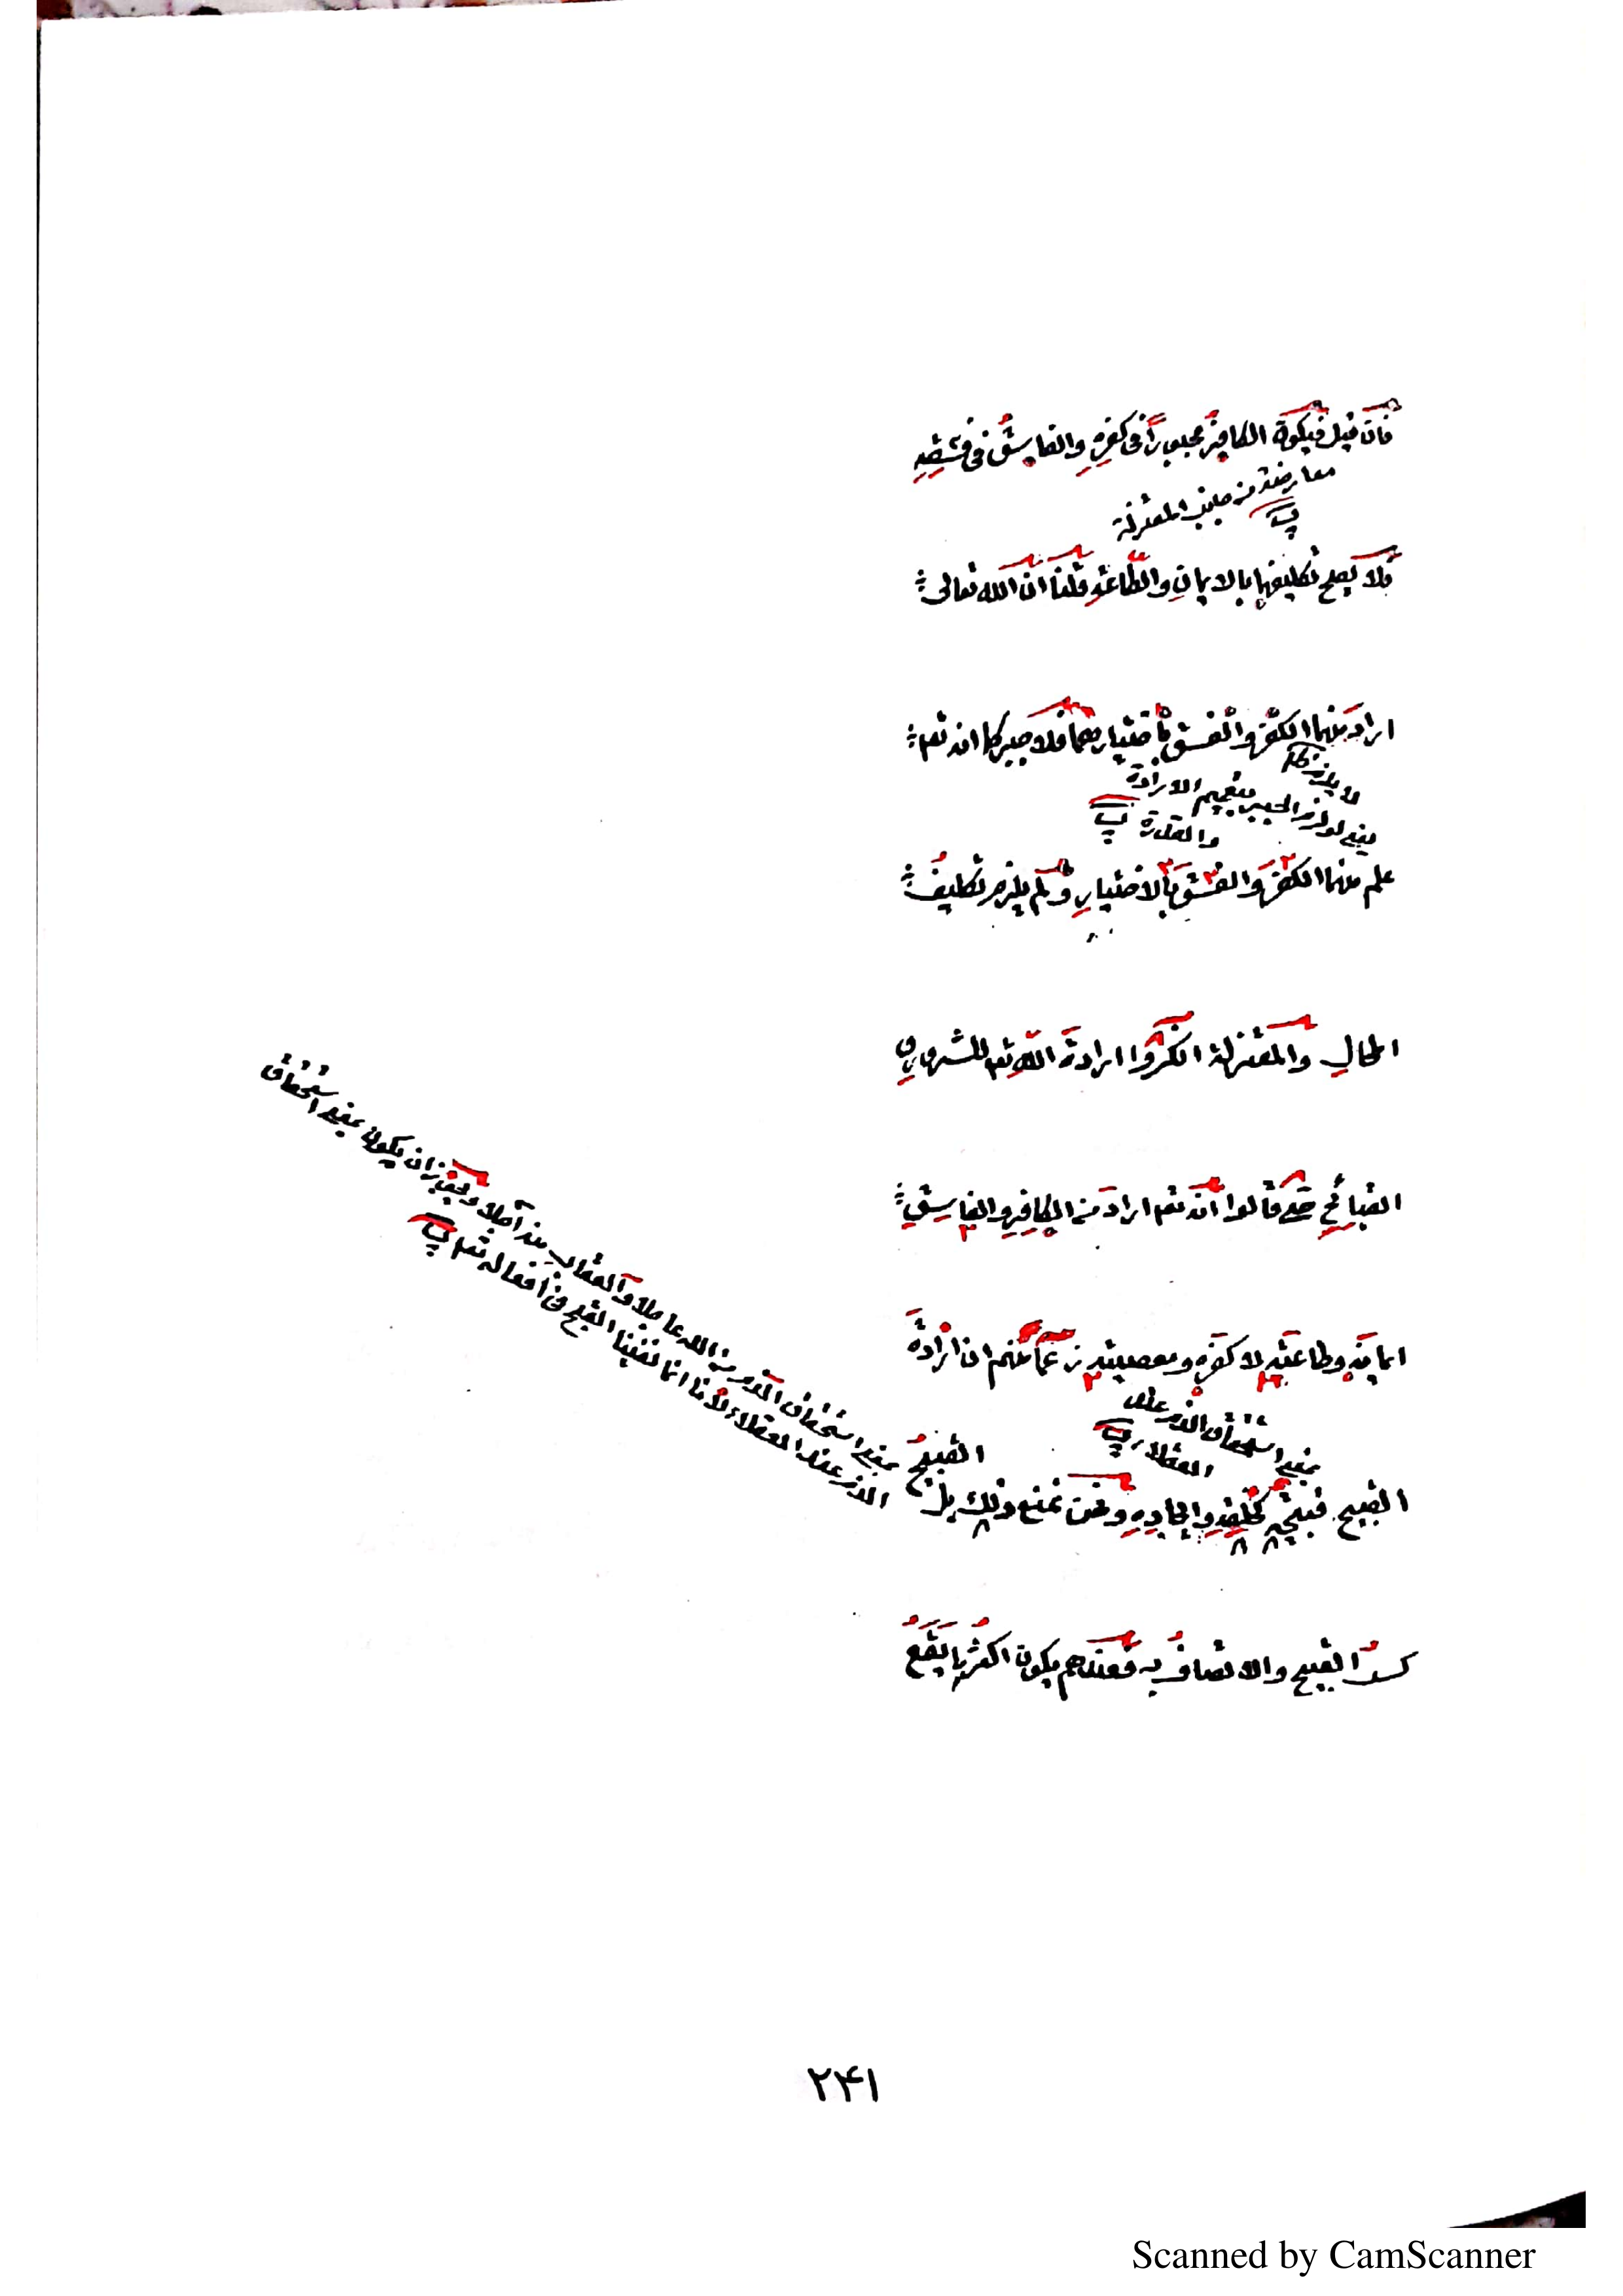 فان قيل فيكون الكافر مجبورا في كفره والفاسق في فسقه
معارضة من جانب المعتزلة
فلا يصح تكليفهما بالايمان والطاعة قلنا ان الله تعالى
اراد منهما الكفر والفسق باختيارهما فلا جبر كما انه تعم
لا يلزم
يعني لو لزم الجبر بتعميم الارادة
والقدرة
علم منهما الكفر والفسق بالاختيار ولم يلزم تكليف
المحال والمعتزلة انكروا ارادة الله تعم للشرور و
القبائح حتى قالوا انه تعم اراد من الكافر والفاسق
ايمانه وطاعته لا كفره ومعصيته زعما منهم ان ارادة
يعني استحقاق الذم عند
العقلاء
القبيح قبيحة كخلقه وايجاده ونحن نمنع ذلك بل
القبيح
يعني استحقاق الذم من الله عاجلا والعقاب منه آجلا ويجوز ان يكون يعني استحقاق
الذم عند العقلاء لأنا انما نفينا القبح في افعاله تعم
كسب القبيح والاتصاف به فعندهم يكون اكثر ما يقع
٢٤١
Scanned by CamScanner